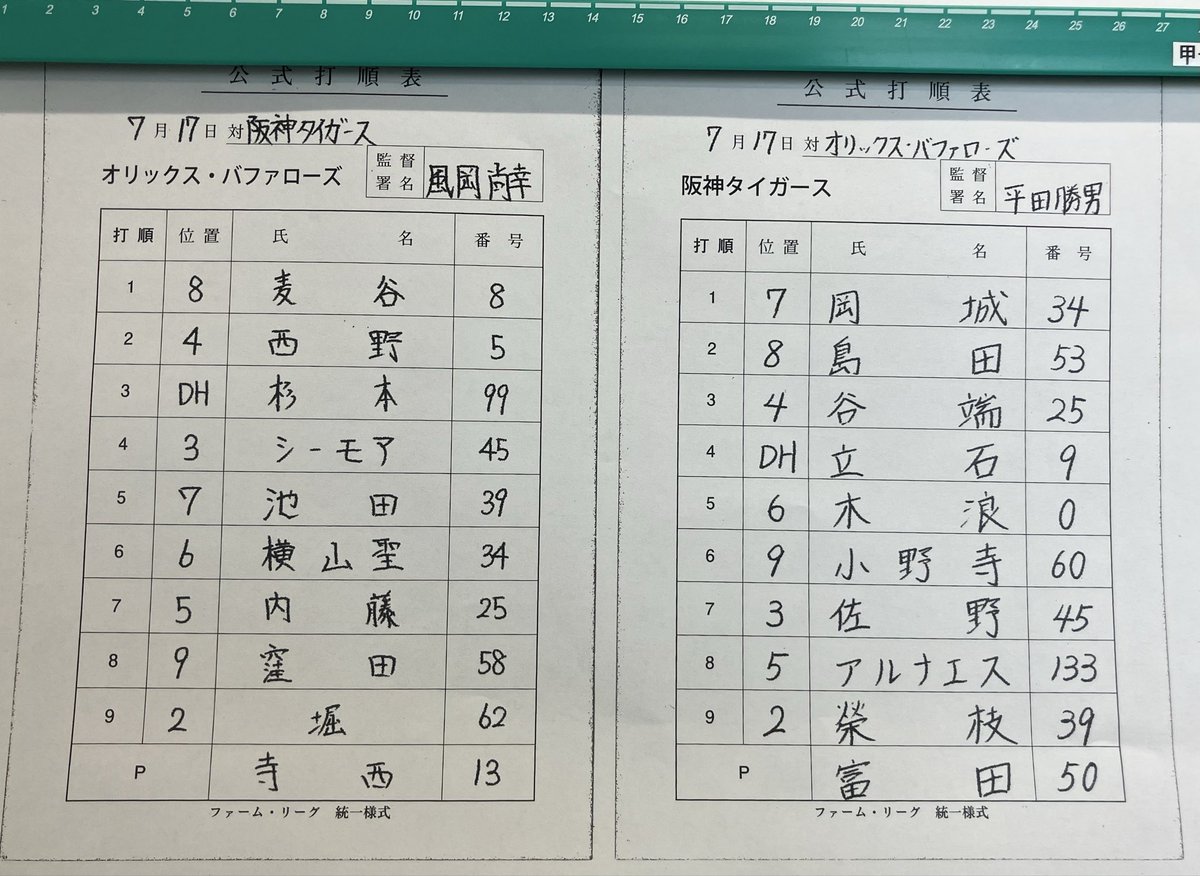 1 2 3 4 5 6 7 8 9 10 11 12 13 14 15 16 17 18 19 20 21 22 23 24 25 26 27
甲
公式打順表
7月17日 対 阪神タイガース
オリックス・バファローズ 監督署名 風岡尚幸
打順 位置 氏名 番号
1 8 麦谷 8
2 4 西野 5
3 DH 杉本 99
4 3 シーモア 45
5 7 池田 39
6 6 横山聖 34
7 5 内藤 25
8 9 窪田 58
9 2 堀 62
P 寺西 13
ファーム・リーグ 統一様式
公式打順表
7月17日 対 オリックス・バファローズ
阪神タイガース 監督署名 平田勝男
打順 位置 氏名 番号
1 7 岡城 34
2 8 島田 53
3 4 谷端 25
4 DH 立石 9
5 6 木浪 0
6 9 小野寺 60
7 3 佐野 45
8 5 アルナエス 133
9 2 榮枝 39
P 富田 50
ファーム・リーグ 統一様式